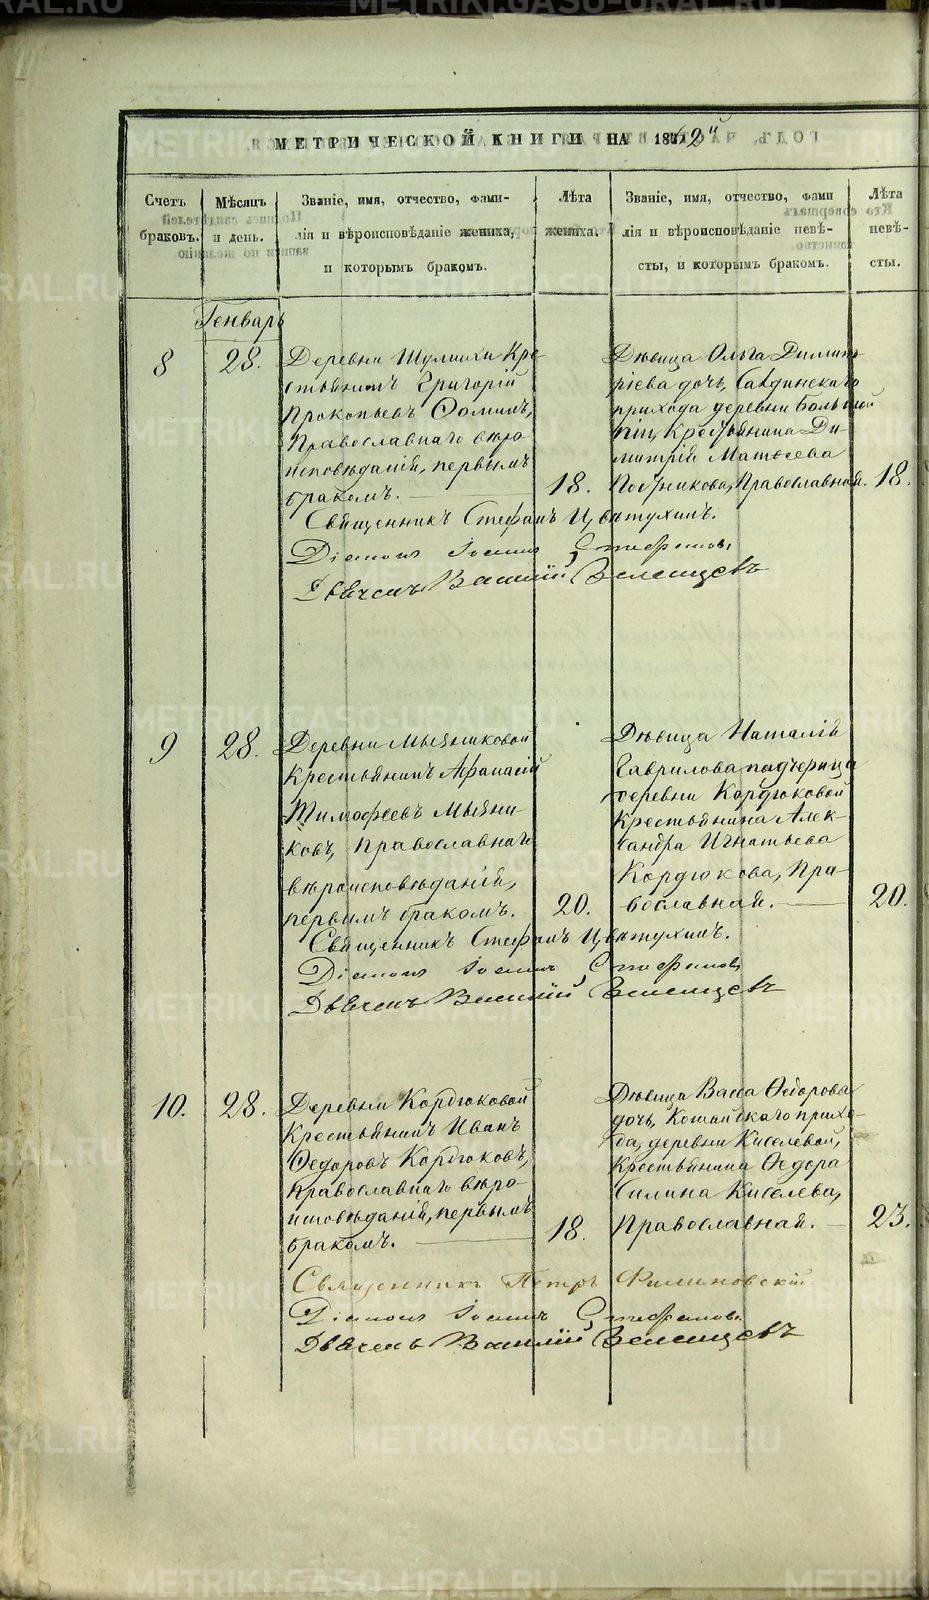 МЕТРИЧЕСКОЙ КНИГИ НА 1862й
Счетъ браковъ.
Мѣсяцъ и день.
Званіе, имя, отчество, фами-
лія и вѣроисповѣданіе жениха,
и которымъ бракомъ.
Лѣта
жениха.
Званіе, имя, отчество, фами
лія и вѣроисповѣданіе невѣ-
сты, и которымъ бракомъ.
Лѣта
невѣ-
сты.
Генварь
8
28.
Деревни Шумихи Кре
стьянинъ Григорій
Прокопьевъ Ѳоминъ,
Православнаго вѣро
исповѣданія, первымъ
бракомъ.
18.
Дѣвица Ольга Димит
ріева дочь, Салдинскаго
прихода деревни
Крестьянина Ди
митрій Матѳеева
Православная.
18.
Священникъ Стефанъ Цвѣтухинъ.
Діаконъ Іоаннъ Стефановъ
Дьячекъ Василій
9
28.
Деревни Мызниковой
Крестьянинъ Аѳанасій
Тимоѳеевъ Мызни
ковъ, Православнаго
вѣроисповѣданія,
первымъ бракомъ.
20.
Дѣвица Наталія
Гаврилова падчерица
деревни Кордюковой
Крестьянина Алек-
сандра Игнатьева
Кордюкова, Пра
вославная.
20.
Священникъ Стефанъ Цвѣтухинъ.
Діаконъ Іоаннъ Стефановъ
Дьячекъ Василій
10.
28.
Деревни Кордюковой
Крестьянинъ Иванъ
Ѳедоровъ Кордюковъ,
Православнаго вѣро
исповѣданія, первымъ
бракомъ.
18.
Дѣвица Васса Ѳедорова
дочь, Кошайскаго прихо-
да, деревни Киселевой,
Крестьянина Ѳедора
Силина Киселева,
Православная.
23.
Священникъ Петръ Филиновскій
Діаконъ Іоаннъ Стефановъ
Дьячекъ Василій
METRIKI.GASO-URAL.RU